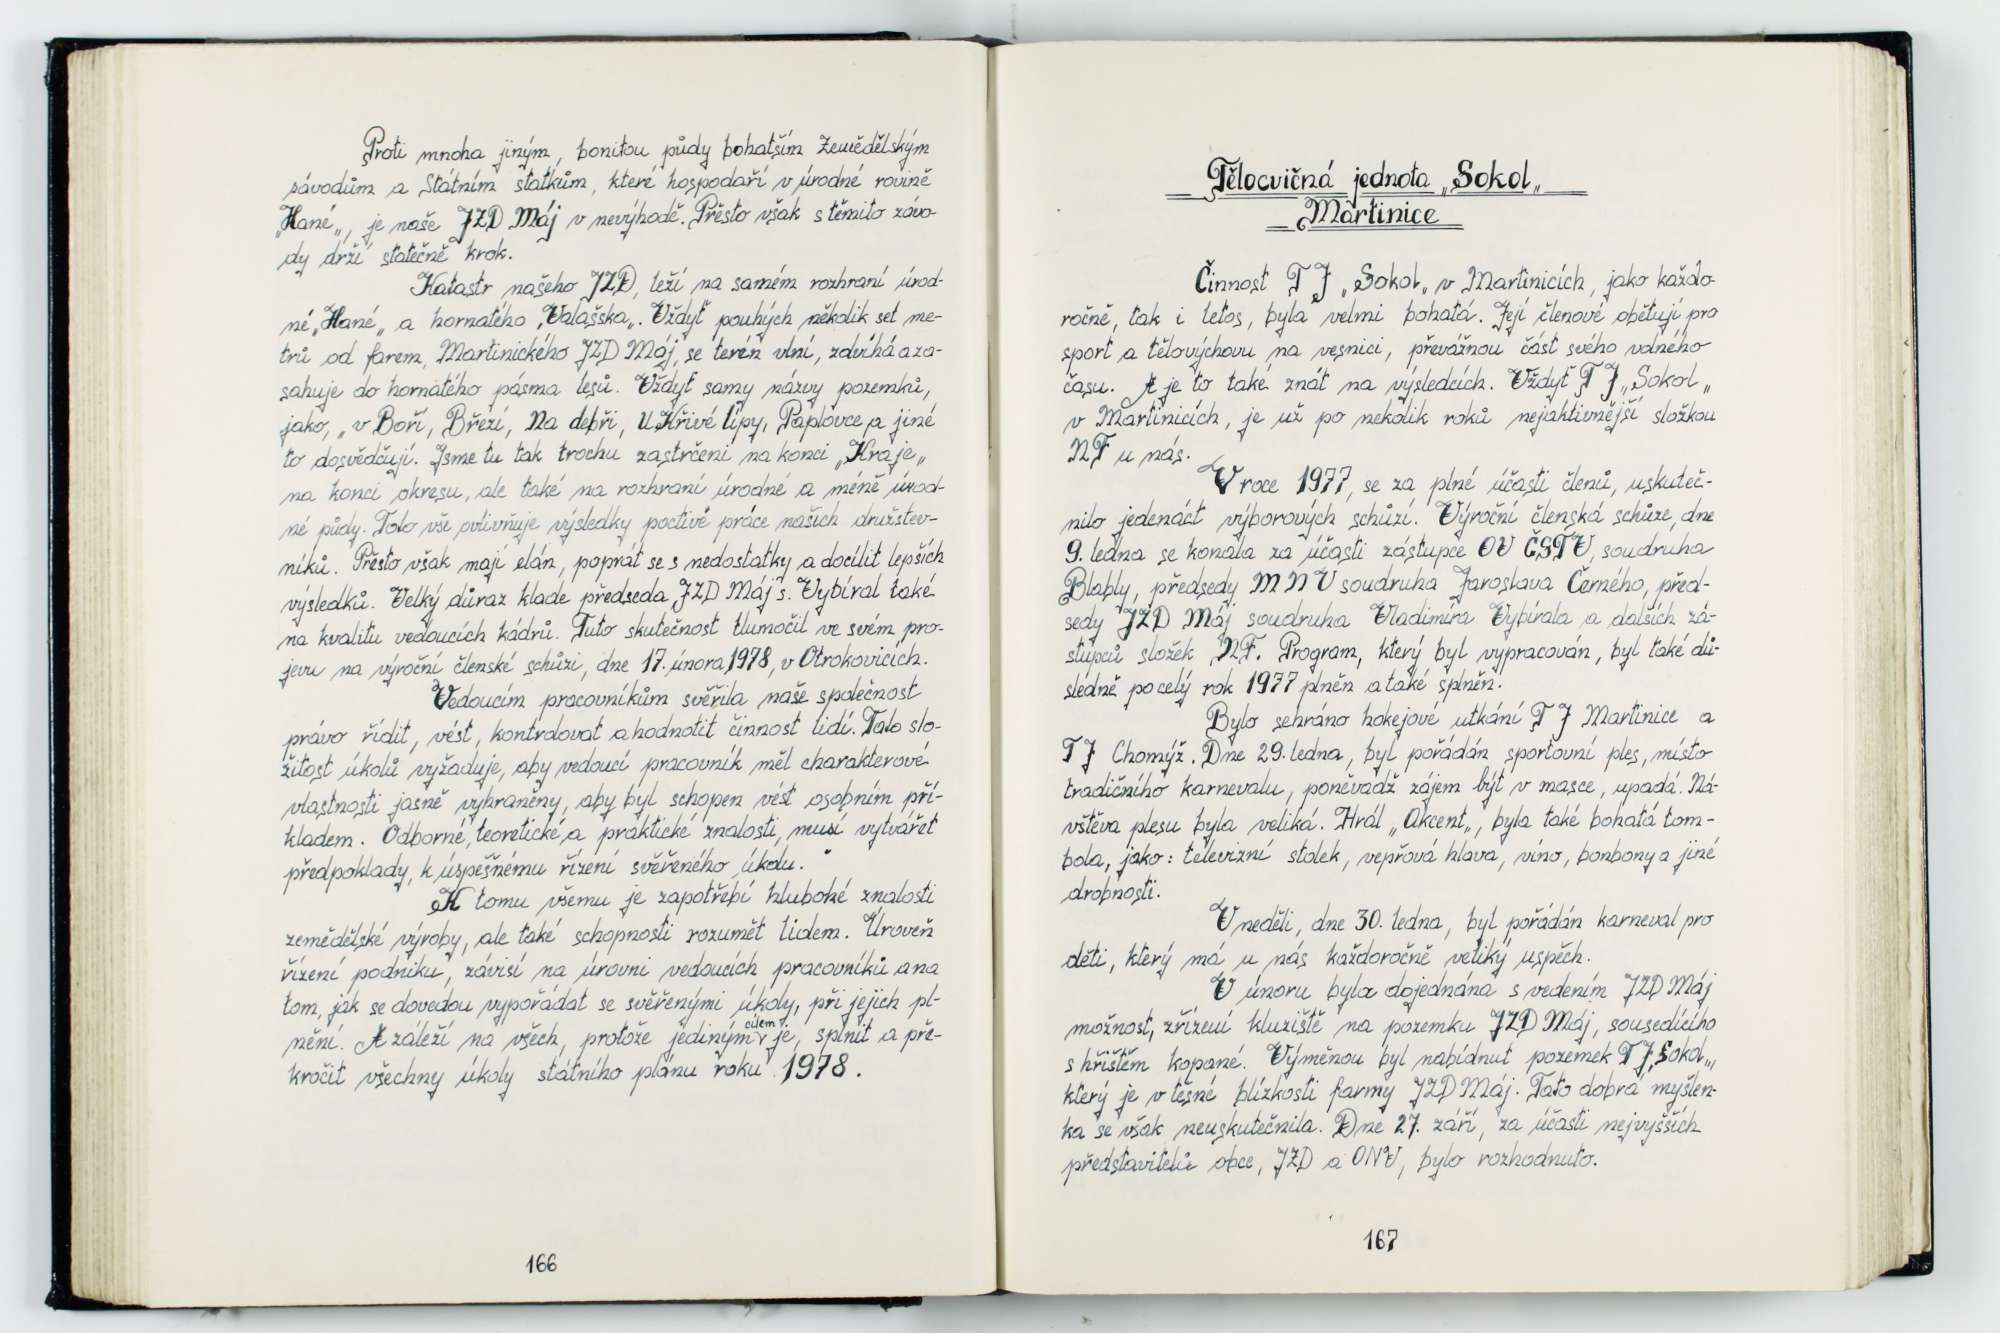 Proti mnoha jiným, bonitou půdy bohatším Zemědělským
závodům a Státním statkům, které hospodaří v úrodné rovině
„Hané„, je naše JZD Máj v nevýhodě. Přesto však s těmito závo-
dy drží statečně krok.
Katastr našeho JZD, leží na samém rozhraní úrod-
né „Hané„ a hornatého „Valašska„. Vždyť pouhých několik set me-
trů od farem, Martinického JZD Máj, se terén vlní, zdvíhá a za-
sahuje do hornatého pásma lesů. Vždyť samy názvy pozemků,
jako, „v Boří, Březí, Na debři, U Křivé lípy, Paplovce a jiné
to dosvědčují. Jsme tu tak trochu zastrčeni na konci „Kraje„
na konci okresu, ale také na rozhraní úrodné a méně úrod-
né půdy. Toto vše ovlivňuje výsledky poctivé práce našich družstev-
níků. Přesto však mají elán, poprat se s nedostatky a docílit lepších
výsledků. Velký důraz klade předseda JZD Máj s. Vybíral také
na kvalitu vedoucích kádrů. Tuto skutečnost tlumočil ve svém pro-
jevu na výroční členské schůzi, dne 17. února 1978, v Otrokovicích.
Vedoucím pracovníkům svěřila naše společnost
právo řídit, vést, kontrolovat a hodnotit činnost lidí. Tato slo-
žitost úkolů vyžaduje, aby vedoucí pracovník měl charakterové
vlastnosti jasně vyhraněny, aby byl schopen vést osobním pří-
kladem. Odborné, teoretické, a praktické znalosti, musí vytvářet
předpoklady, k úspěšnému řízení svěřeného úkolu.
K tomu všemu je zapotřebí hluboké znalosti
zemědělské výroby, ale také schopnosti rozumět lidem. Úroveň
řízení podniku, závisí na úrovni vedoucích pracovníků a na
tom, jak se dovedou vypořádat se svěřenými úkoly, při jejich pl-
nění. A záleží na všech, protože jediným cílem je, splnit a pře-
kročit všechny úkoly státního plánu roku 1978.
166
Tělocvičná jednota „Sokol„
Martinice
Činnost T J „Sokol„ v Martinicích, jako každo-
ročně, tak i letos, byla velmi bohatá. Její členové obětují pro
sport a tělovýchovu na vesnici, převážnou část svého volného
času. A je to také znát na výsledcích. Vždyť T J „Sokol„
v Martinicích, je už po nekolik roků nejaktivnější složkou
NF u nás.
V roce 1977, se za plné účasti členů, uskuteč-
nilo jedenáct výborových schůzí. Výroční členská schůze, dne
9. ledna se konala za účasti zástupce OV ČSTV, soudruha
Blably, předsedy M N V soudruha Jaroslava Černého, před-
sedy JZD Máj soudruha Vladimíra Vybírala a dalších zá-
stupců složek NF. Program, který byl vypracován, byl také dů-
sledně po celý rok 1977 plněn a také splněn.
Bylo sehráno hokejové utkání T J Martinice a
T J Chomýž. Dne 29. ledna, byl pořádán sportovní ples, místo
tradičního karnevalu, poněvadž zájem být v masce, upadá. Ná-
vštěva plesu byla veliká. Hrál „Akcent„, byla také bohatá tom-
bola, jako: televizní stolek, vepřová hlava, víno, bonbony a jiné
drobnosti.
V neděli, dne 30. ledna, byl pořádán karneval pro
děti, který má u nás každoročně veliký uspěch.
V únoru byla dojednána s vedením JZD Máj
možnost, zřízení kluziště na pozemku JZD Máj, sousedícího
s hřištěm kopané. Výměnou byl nabídnut pozemek T J „Sokol„,
který je v těsné blízkosti farmy JZD Máj. Tato dobrá myšlen-
ka se však neuskutečnila. Dne 27. září, za účasti nejvyšších
představitelů obce, JZD a ONV, bylo rozhodnuto.
167